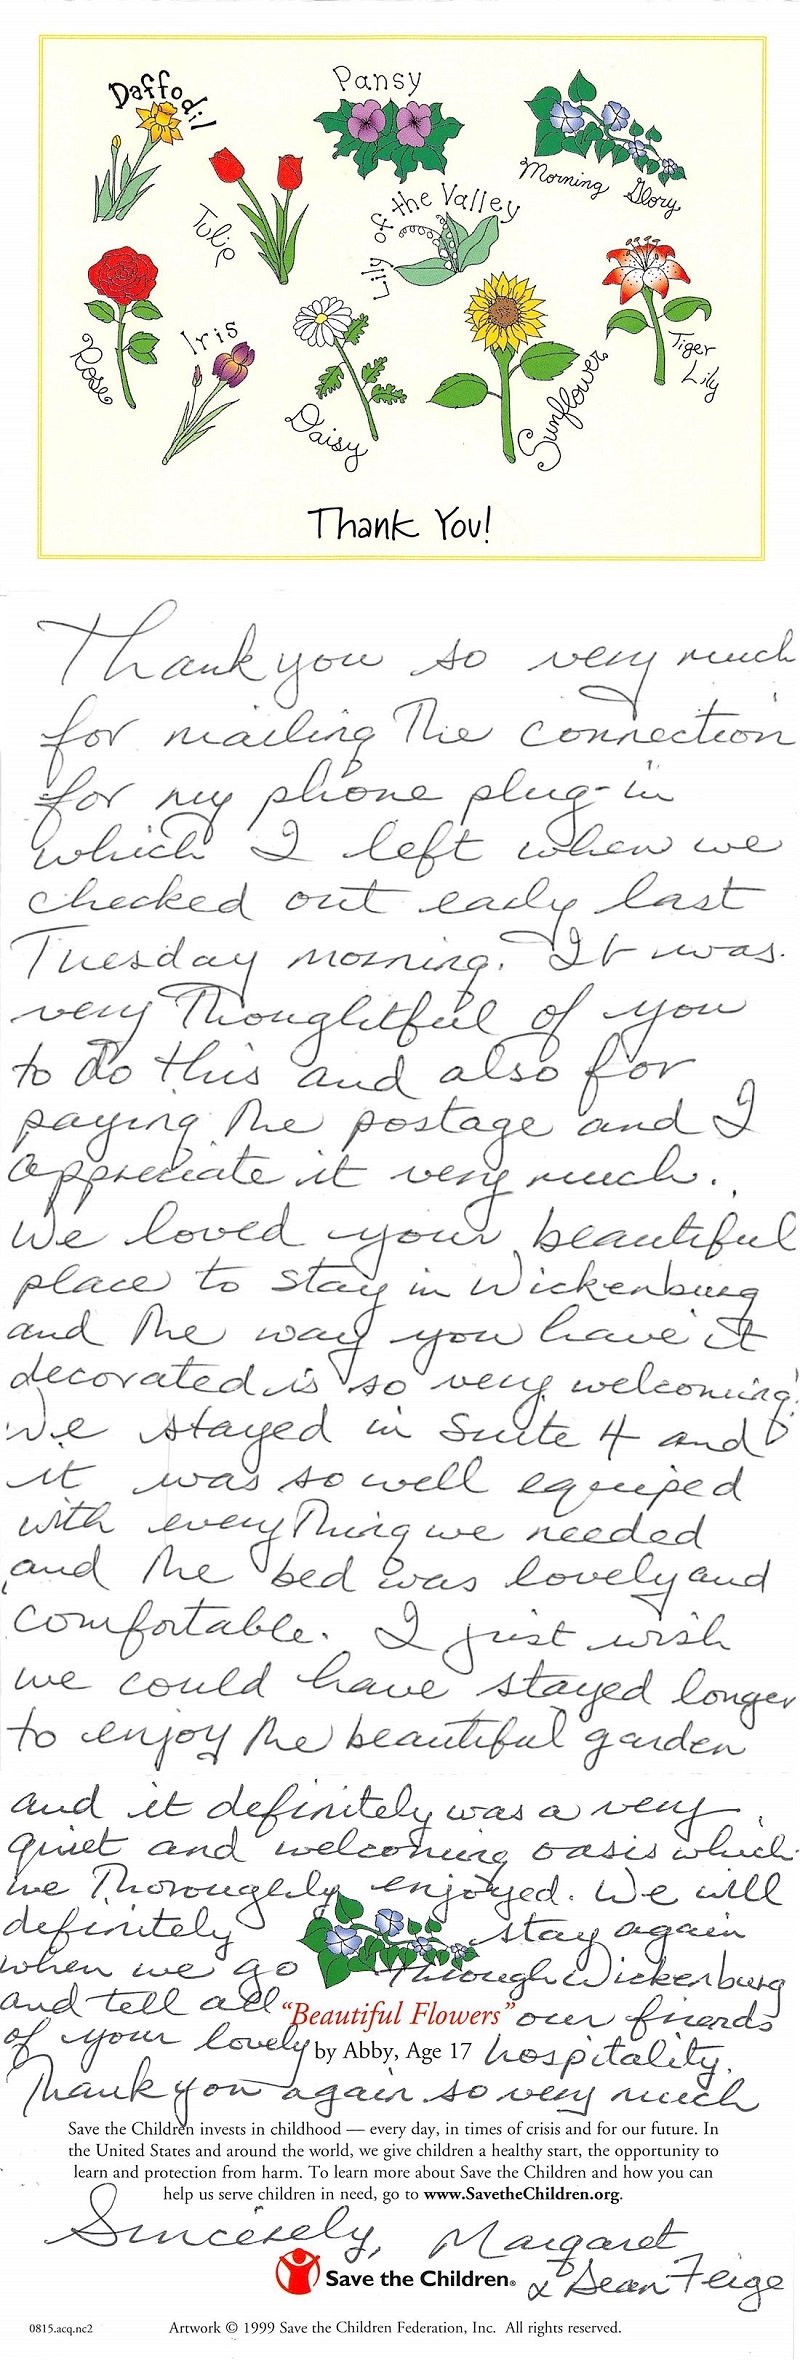 Daffodil
Pansy
Morning Glory
Tulip
Lily of the Valley
Rose
Iris
Daisy
Sunflower
Tiger Lily
Thank You!
Thank you so very much
for mailing the connection
for my phone plug-in
which I left when we
checked out early last
Tuesday morning. It was
very thoughtful of you
to do this and also for
paying the postage and I
appreciate it very much.
We loved your beautiful
place to stay in Wickenburg
and the way you have it
decorated is so very welcoming!
We stayed in Suite 4 and
it was so well equiped
with everything we needed
and the bed was lovely and
comfortable. I just wish
we could have stayed longer
to enjoy the beautiful garden
and it definitely was a very
quiet and welcoming oasis which
we thoroughly enjoyed. We will
definitely stay again
when we go through Wickenburg
and tell all our friends
"Beautiful Flowers"
of your lovely hospitality.
by Abby, Age 17
Thank you again so very much
Save the Children invests in childhood — every day, in times of crisis and for our future. In
the United States and around the world, we give children a healthy start, the opportunity to
learn and protection from harm. To learn more about Save the Children and how you can
help us serve children in need, go to www.SavetheChildren.org.
Sincerely, Margaret
& Dean Feige
Save the Children®
0815.acq.nc2
Artwork © 1999 Save the Children Federation, Inc. All rights reserved.